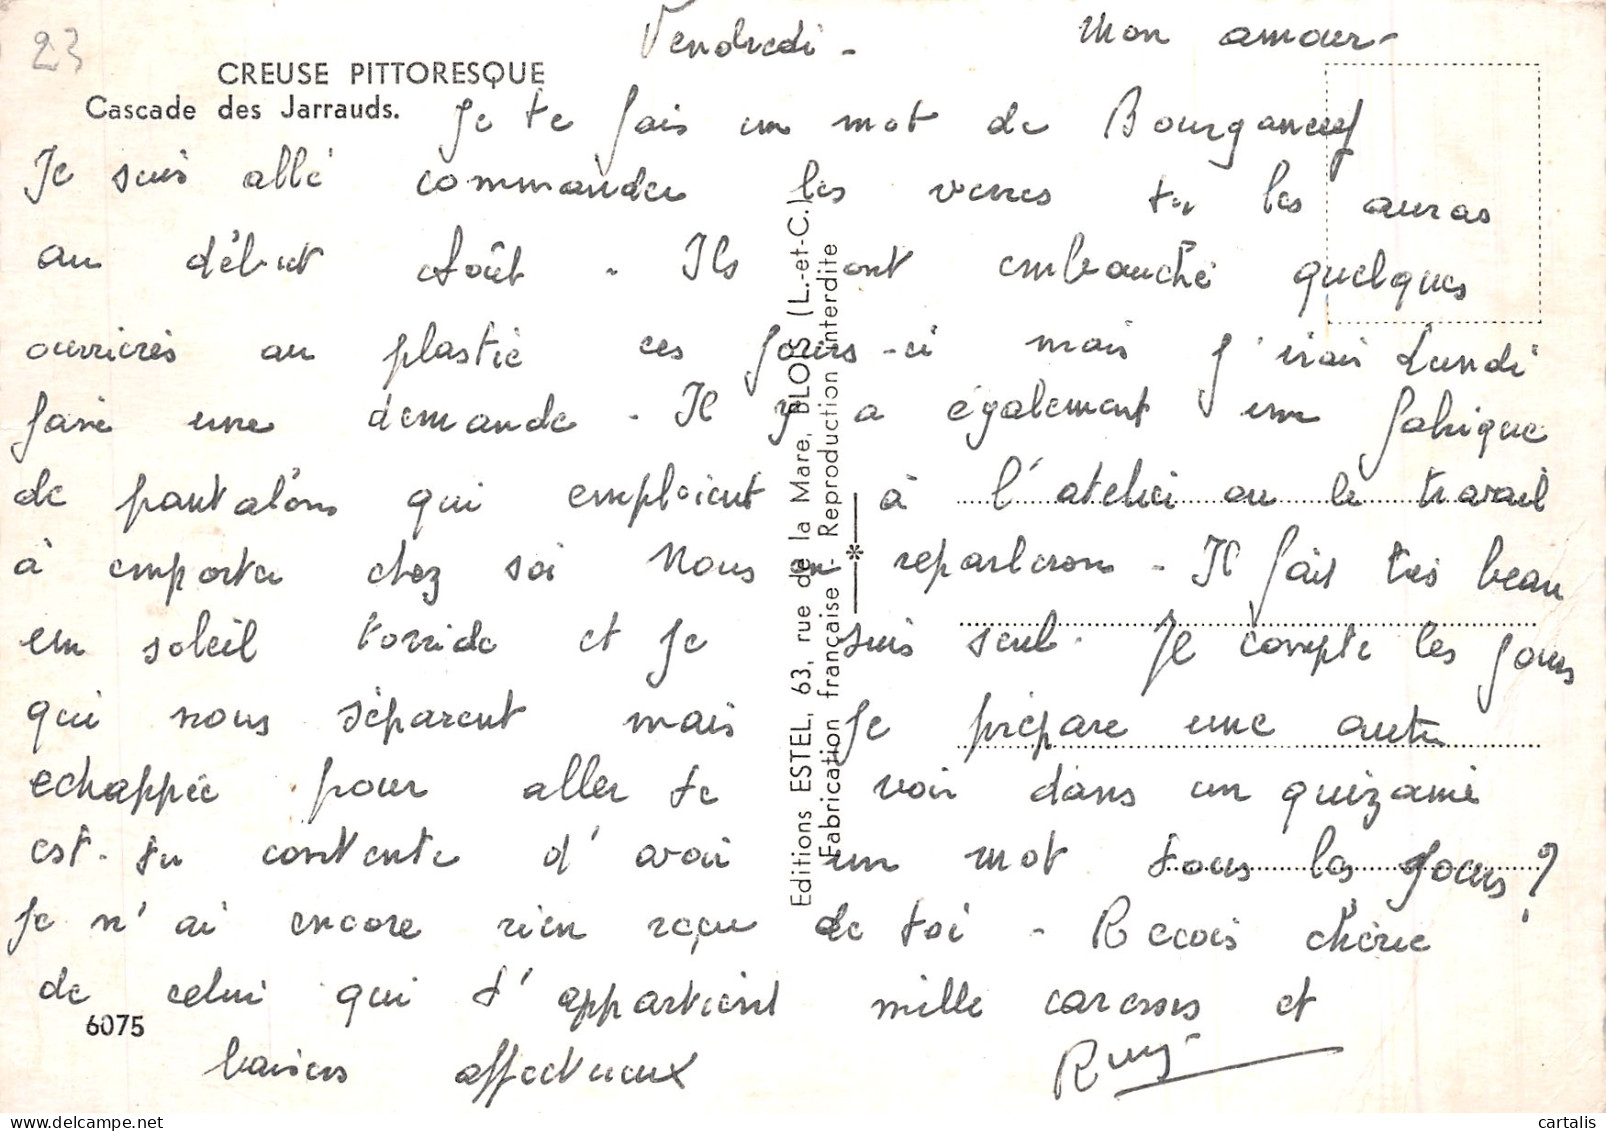 23
Vendredi - Mon amour -
CREUSE PITTORESQUE
Cascade des Jarrauds.
Je te fais un mot de Bourganeuf
Je suis allé commander les verres tu les auras
au début Août - Ils ont embauché quelques
ouvrières au plastic ces jours-ci mais j'irais Lundi
faire une demande - Il y a également une fabrique
de pantalons qui emploient à l'atelier ou le travail
à emporter chez soi Nous en reparlerons - Il fait très beau
un soleil torride et je suis seul. Je compte les jours
qui nous séparent mais je prépare une autre
echappée pour aller te voir dans un quizaine
est-tu contente d'avoir un mot tous les jours ?
Je n'ai encore rien reçu de toi - Recois chérie
de celui qui t'appartient mille caresses et
baisers affectueux
6075
Editions ESTEL, 63, rue de la Mare, BLOIS (L.-et-C.)
Fabrication française - Reproduction interdite
cartalis